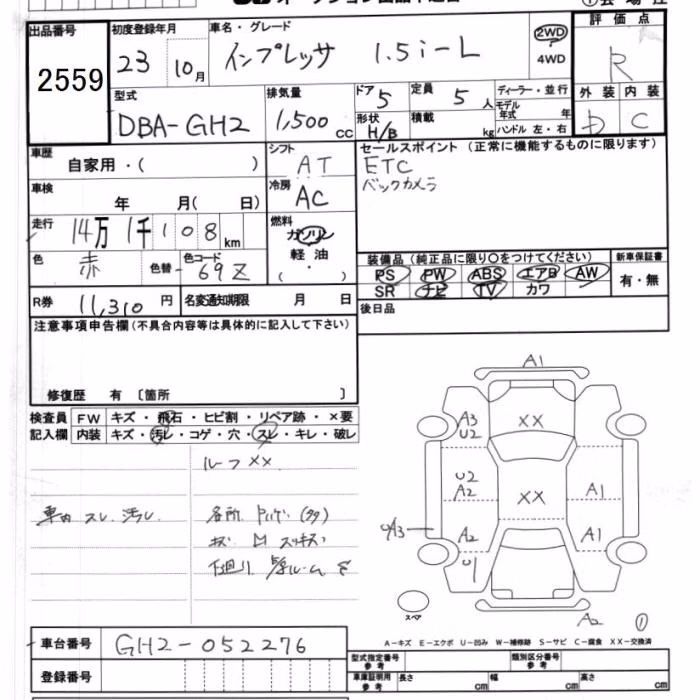 出品番号 2559
初度登録年月 23 10月
車名・グレード インプレッサ 1.5i-L
2WD
4WD
評価点 R
型式 DBA-GH2
排気量 1,500 CC
ドア 5
定員 5 人
形状 H/B
積載 kg
ディーラー・並行
モデル年式 年
ハンドル 左・右
外装 D
内装 C
車歴 自家用・( )
シフト AT
セールスポイント (正常に機能するものに限ります)
ETC
バックカメラ
車検 年 月( 日)
冷房 AC
走行 14万 1千 108 km
燃料 ガソリン
軽油
( ・ )
色 赤 色替 色コード 69Z
装備品 (純正品に限り○をつけてください)
PS PW ABS エアB AW
SR ナビ TV カワ
新車保証書
有・無
R券 11,310 円 名変通知期限 月 日
後日品
注意事項申告欄(不具合内容等は具体的に記入して下さい)
修復歴 有 〔箇所 〕
検査員 FW キズ・飛石・ヒビ割・リペア跡・×要
記入欄 内装 キズ・汚レ・コゲ・穴・スレ・キレ・破レ
ルーフ XX
車内 スレ 汚レ
各所
キズ
下廻り
A1
XX
A3
U2
U2
A2
XX
A1
A2
A1
U1
A2
スペア
①
A-キズ E-エクボ U-凹み W-補修跡 S-サビ C-腐食 XX-交換済
車台番号 GH2-052276
登録番号
型式指定番号 参考
類別区分番号 参考
車庫証明用 参考 長さ cm 幅 cm 高さ cm